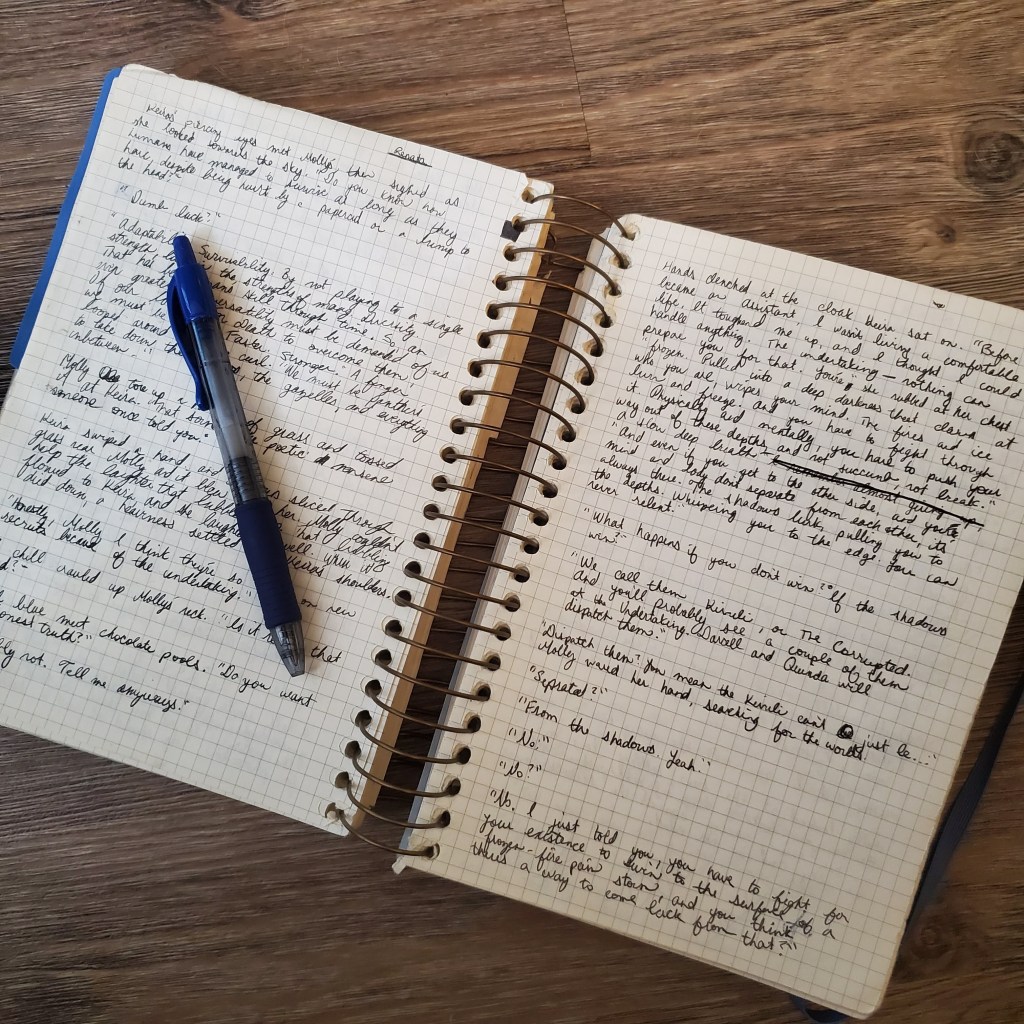 Renata
Keira's piercing eyes met Molly's, then sighed as
she looked towards the sky. "Do you know how
humans have managed to survive as long as they
have, despite being hurt by a papercut or a bump to
the head?"
"Dumb luck?"
Survivability. By not playing to a single
strength the strengths many quickly
That had and still through time. So an
even greater versatility must be demanded
of our or death to overcome them of us
we must Faster. Stronger." A finger
looped around curl. "We must be panthers
to take down the, the gazelles, and everything
inbetween."
Molly tore up a of grass and tossed
it at Keira. "Not some poetic nonsense
someone once told you?"
Keira swiped a hand, and sliced through
grass near Molly and her. Molly couldn't
help the laughter that that bubbling
flowed to Keira, and she laughed well. When it
died down, a heaviness settled shoulders.
"Honestly, Molly, I think they're so on new
recruits because of the undertaking."
chill crawled up Molly's neck. "Is it that
blue met chocolate pools. "Do you want
honest truth?"
not. Tell me anyways."
Hands clenched at the cloak Keira sat on. "Before I
became an assistant, I wasn't living a comfortable
life. It toughened me up, and I thought I could
handle anything. The undertaking — nothing can
prepare you for that. You're," she rubbed at her chest
"frozen. Pulled into a deep darkness that clawed at
who you are, wipes your mind. The fires and ice
burn and freeze, and you have to fight through
it. Physically and mentally, you have to push your
way out of these depths, and not succumb, not break."
A slow, deep breath
"and even if you get to the other side, and you're
mind and body don't separate from each other, it's
always there. The shadows lurk, pulling you to
the depths. Whispering you to the edge. You can
never relent."
"What happens if you don't win? If the shadows
win?"
"We call them Kiruli, or The Corrupted.
And you'll probably see a couple of them
at the Undertaking. Darrell and Quinda will
dispatch them."
"Dispatch them? You mean the Kiruli can't just be..."
Molly waved her hand, searching for the words.
"Seprated?"
"From the shadows. Yeah."
"No."
"No?"
"No. I just told you, you have to fight for
your existence to swim to the surface of a
frozen-fire pain storm, and you think
there's a way to come back from that?"